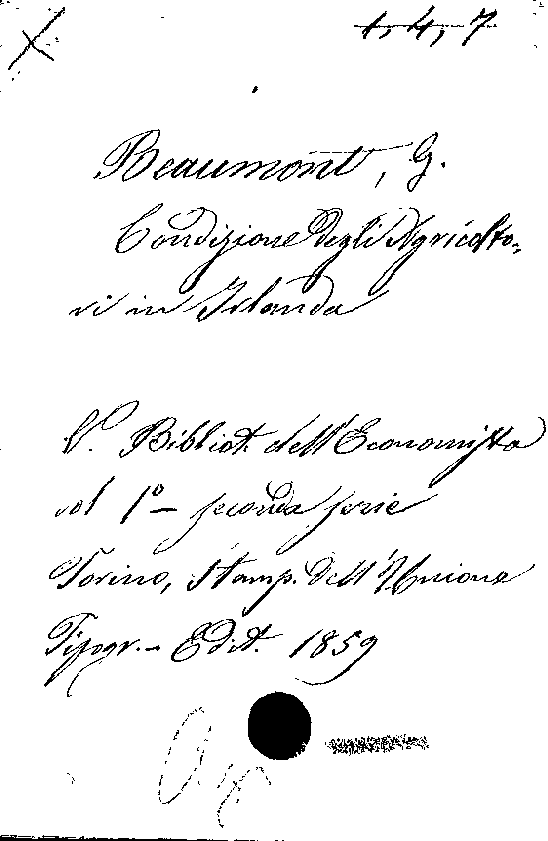 1, 4, 7
Beaumont, G.
Condizione degli Agricolto-
ri in Irlanda
V. Bibliot. dell'Economista
vol 1º - seconda serie
Torino, Stamp. dell'Unione
Tipogr. - Edit. 1859